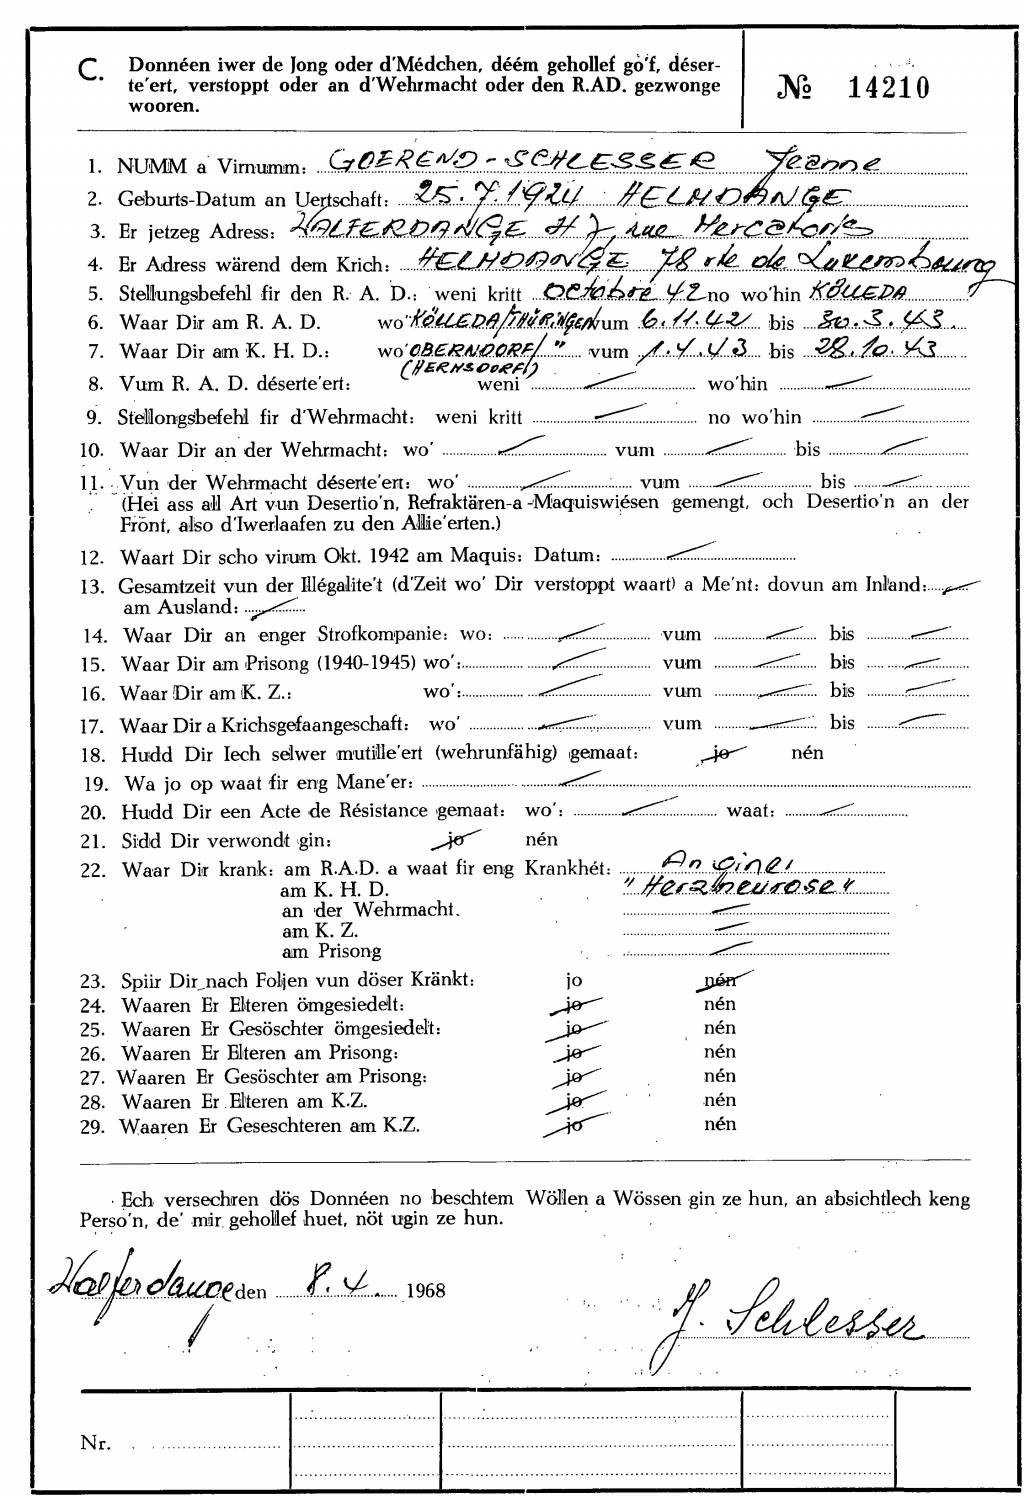 C. Donnéen iwer de Jong oder d'Médchen, déém gehollef gò'f, déser-
te'ert, verstoppt oder an d'Wehrmacht oder den R.AD. gezwonge
wooren.
№ 14210
1. NUMM a Virnumm: GOEREND-SCHLESSER Jeanne
2. Geburts-Datum an Uertschaft: 25.7.1924 HELMDANGE
3. Er jetzeg Adress: WALFERDANGE rue Mercatoris
4. Er Adress wärend dem Krich: HELMDANGE 78 rte de Luxembourg
5. Stellungsbefehl fir den R. A. D.: weni kritt octobre 42 no wo'hin KÖLLEDA
6. Waar Dir am R. A. D. wo' KÖLLEDA/THÜRINGEN vum 6.11.42 bis 30.3.43
7. Waar Dir am K. H. D.: wo' OBERNDORF/ " vum 1.4.43 bis 28.10.43
(HERMSDORF)
8. Vum R. A. D. déserte'ert: weni wo'hin
9. Stellongsbefehl fir d'Wehrmacht: weni kritt no wo'hin
10. Waar Dir an der Wehrmacht: wo' vum bis
11. Vun der Wehrmacht déserte'ert: wo' vum bis
(Hei ass all Art vun Desertio'n, Refraktären-a-Maquiswiésen gemengt, och Desertio'n an der
Frönt, also d'Iwerlaafen zu den Allie'erten.)
12. Waart Dir scho virum Okt. 1942 am Maquis: Datum:
13. Gesamtzeit vun der Illégalite't (d'Zeit wo' Dir verstoppt waart) a Me'nt: dovun am Inland:
am Ausland:
14. Waar Dir an enger Strofkompanie: wo: vum bis
15. Waar Dir am Prisong (1940-1945) wo': vum bis
16. Waar Dir am K. Z.: wo': vum bis
17. Waar Dir a Krichsgefaangeschaft: wo' vum bis
18. Hudd Dir Iech selwer mutille'ert (wehrunfähig) gemaat: jo nén
19. Wa jo op waat fir eng Mane'er:
20. Hudd Dir een Acte de Résistance gemaat: wo': waat:
21. Sidd Dir verwondt gin: jo nén
22. Waar Dir krank: am R.A.D. a waat fir eng Krankhét: Angine,
am K. H. D. "Herzneurose"
an der Wehrmacht.
am K. Z.
am Prisong
23. Spiir Dir nach Foljen vun döser Kränkt: jo nén
24. Waaren Er Elteren ömgesiedelt: jo nén
25. Waaren Er Gesöschter ömgesiedelt: jo nén
26. Waaren Er Elteren am Prisong: jo nén
27. Waaren Er Gesöschter am Prisong: jo nén
28. Waaren Er Elteren am K.Z. jo nén
29. Waaren Er Geseschteren am K.Z. jo nén
Ech versechren dös Donnéen no beschtem Wöllen a Wössen gin ze hun, an absichtlech keng
Perso'n, de' mir gehollef huet, nöt ugin ze hun.
Walferdange den 8.4. 1968
J. Schlesser
Nr.